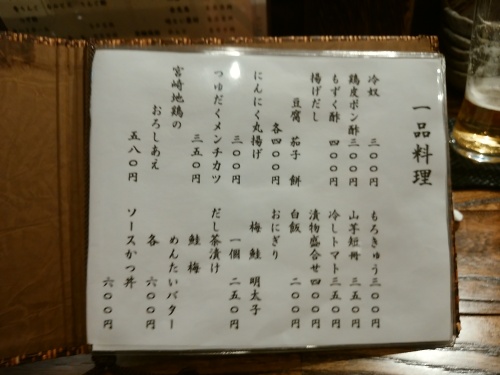 一品料理
冷奴 三〇〇円
鶏皮ポン酢 三〇〇円
もずく酢 四〇〇円
揚げだし
豆腐 茄子 餅
各四〇〇円
にんにく丸揚げ
三〇〇円
つゆだくメンチカツ
三五〇円
宮崎地鶏の
おろしあえ
五八〇円
もろきゅう 三〇〇円
山芋短冊 三五〇円
冷しトマト 三五〇円
漬物盛合せ 四〇〇円
白飯 二〇〇円
おにぎり
梅 鮭 明太子
一個 二五〇円
だし茶漬け
鮭 梅
めんたいバター
各 六〇〇円
ソースかつ丼
六〇〇円